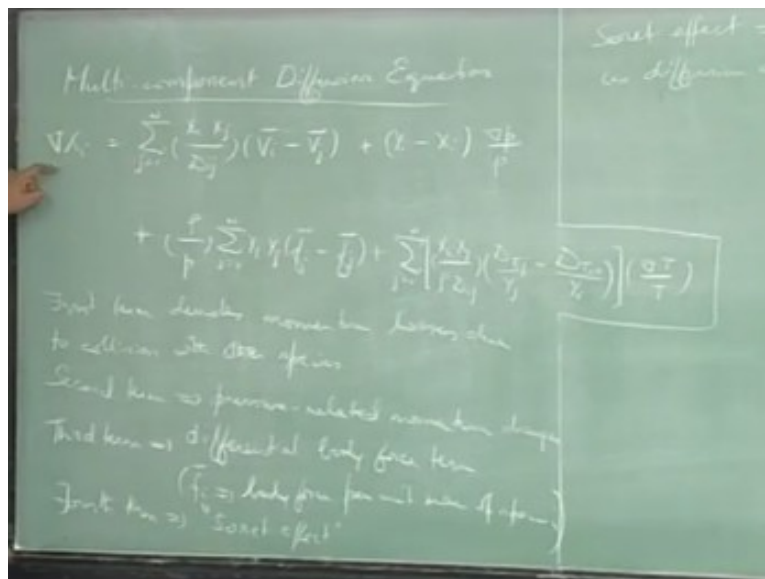 Multi-component Diffusion Equation
∇Xᵢ = Σⱼ₌₁ᴺ (Xᵢ Xⱼ / Dᵢⱼ)(V̄ⱼ − V̄ᵢ) + (Yᵢ − Xᵢ) ∇p/p
+ (ρ/p) Σⱼ₌₁ᴺ Yᵢ Yⱼ (f̄ᵢ − f̄ⱼ) + Σⱼ₌₁ᴺ [(Xᵢ Xⱼ / ρ Dᵢⱼ)(D_Tⱼ/Yⱼ − D_Tᵢ/Yᵢ)] (∇T/T)
First term denotes momentum losses due
to collision with species
Second term ⇒ pressure-related momentum changes
Third term ⇒ differential body force term
(f̄ᵢ ⇒ body force per unit mass of species)
Fourth term ⇒ "Soret effect"
Soret effect =
in diffusion